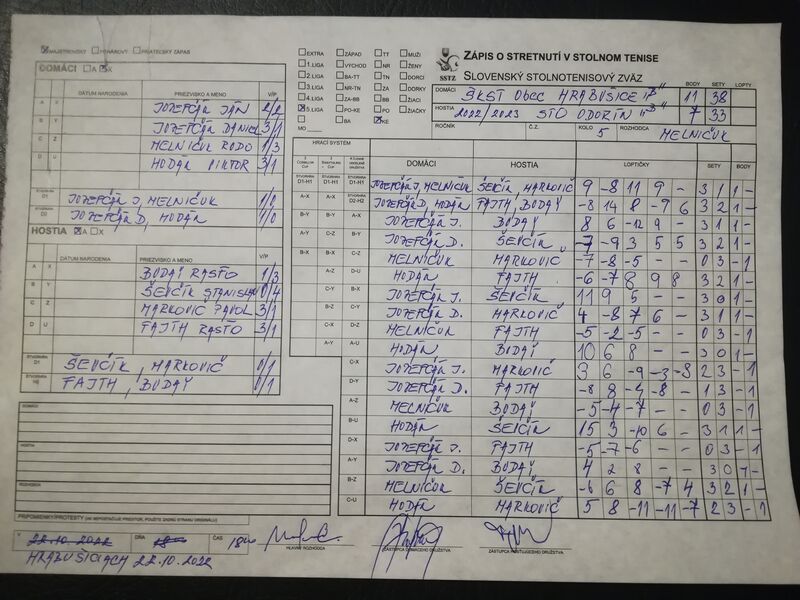 MAJSTROVSKÝ POHÁROVÝ PRIATEĽSKÝ ZÁPAS
DOMÁCI A X
DÁTUM NARODENIA PRIEZVISKO A MENO V/P
A X JOZEFČÁK JÁN 2/2
B Y JOZEFČÁK DANIEL 3/1
C Z MELNIČUK RODO 1/3
D U HODÁN VIKTOR 3/1
ŠTVORHRA D1 JOZEFČÁK J, MELNIČUK 1/0
ŠTVORHRA D2 JOZEFČÁK D, HODÁN 1/0
HOSTIA A X
DÁTUM NARODENIA PRIEZVISKO A MENO V/P
A X BODAY RASŤO 1/3
B Y ŠEVČÍK STANISLAV 0/4
C Z MARKOVIČ PAVOL 3/1
D U FAJTH RASŤO 3/1
ŠTVORHRA D1 ŠEVČÍK, MARKOVIČ 0/1
ŠTVORHRA FAJTH, BODAY 0/1
DOMÁCI
HOSTIA
ROZHODCA
PRIPOMIENKY/PROTESTY (AK NEPOSTAČUJE PRIESTOR, POUŽITE ZADNÚ STRANU ORIGINÁLU)
V 22.10.2022 DŇA ČAS 18
HRABUŠICIACH 22.10.2022
HLAVNÝ ROZHODCA
ZÁSTUPCA DOMÁCEHO DRUŽSTVA
ZÁSTUPCA HOSŤUJÚCEHO DRUŽSTVA
EXTRA ZÁPAD TT MUŽI
1.LIGA VÝCHOD NR ŽENY
2.LIGA BA-TT TN DORCI
3.LIGA NR-TN ZA DORKY
4.LIGA ZA-BB BB ŽIACI
5.LIGA PO-KE PO ŽIAČKY
BA KE
MO
SSTZ
ZÁPIS O STRETNUTÍ V STOLNOM TENISE
SLOVENSKÝ STOLNOTENISOVÝ ZVÄZ
DOMÁCI ŠKST OBEC HRABUŠICE "B" BODY 11 SETY 38 LOPTY
HOSTIA 2022/2023 STO ODORÍN "B" BODY 7 SETY 33 LOPTY
ROČNÍK Č.Z. KOLO 5 ROZHODCA MELNIČUK
HRACÍ SYSTÉM DOMÁCI HOSTIA LOPTIČKY SETY BODY
D1-H1 D1-H1 JOZEFČÁK J, MELNIČUK ŠEVČÍK, MARKOVIČ 9 -8 11 9 - 3 1 1 -
A-X A-X D2-H2 JOZEFČÁK D, HODÁN FAJTH, BODAY -8 14 8 -9 6 3 2 1 -
B-Y B-Y A-X JOZEFČÁK J. BODAY 8 6 -12 9 - 3 1 1 -
A-Y C-Z B-Y JOZEFČÁK D. ŠEVČÍK -7 -9 3 5 5 3 2 1 -
B-X B-X C-Z MELNIČUK MARKOVIČ -7 -8 -5 - - 0 3 - 1
A-Z D-U HODÁN FAJTH -6 -7 8 9 8 3 2 1 -
C-Y B-X JOZEFČÁK J. ŠEVČÍK 11 9 5 - - 3 0 1 -
B-Z C-Y JOZEFČÁK D. MARKOVIČ 4 -8 7 6 - 3 1 1 -
C-X D-Z MELNIČUK FAJTH -5 -2 -5 - - 0 3 - 1
A-Y A-U HODÁN BODAY 10 6 8 - - 3 0 1 -
C-X JOZEFČÁK J. MARKOVIČ 3 6 -9 -3 -8 2 3 - 1
D-Y JOZEFČÁK D. FAJTH -8 8 -4 -8 - 1 3 - 1
A-Z MELNIČUK BODAY -5 -4 -7 - - 0 3 - 1
B-U HODÁN ŠEVČÍK 15 3 -10 6 - 3 1 1 -
D-X JOZEFČÁK J. FAJTH -5 -7 -6 - - 0 3 - 1
A-Y JOZEFČÁK D. BODAY 4 2 8 - - 3 0 1 -
B-Z MELNIČUK ŠEVČÍK -6 6 8 -7 4 3 2 1 -
C-U HODÁN MARKOVIČ 5 8 -11 -11 -7 2 3 - 1